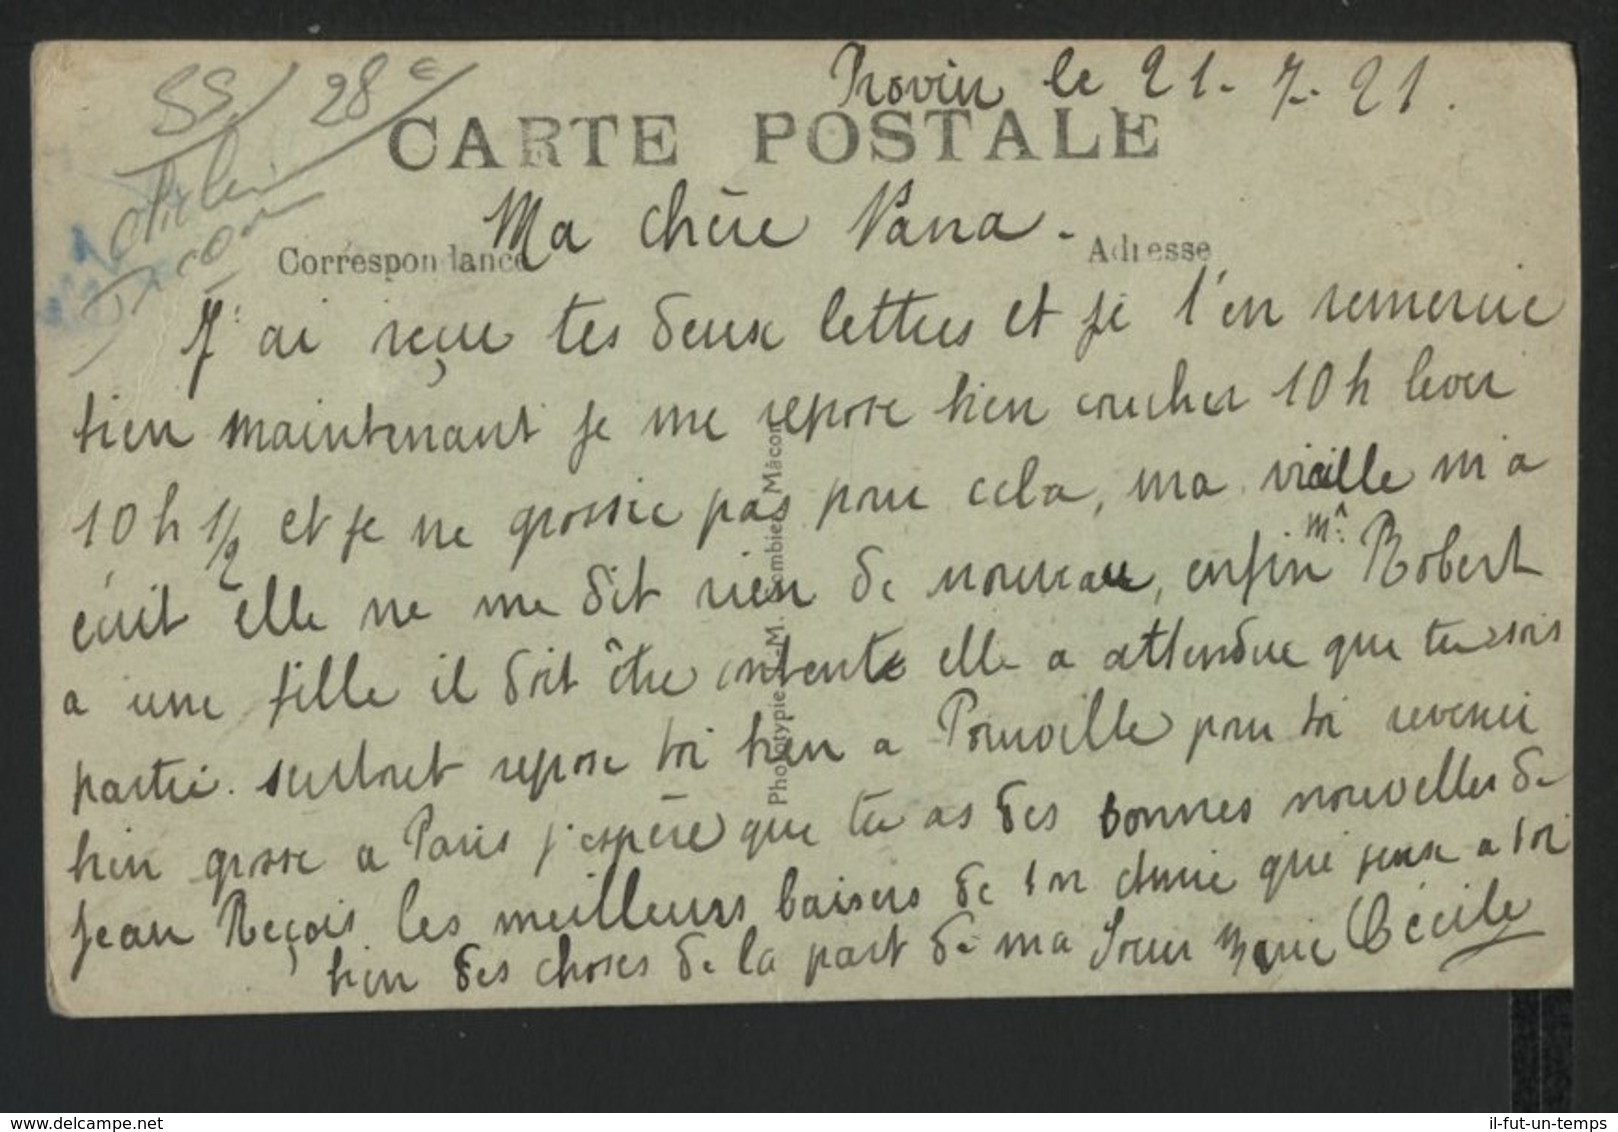 55 / 28 €
Provin le 21-7-21.
CARTE POSTALE
Ma chère Nana -
Correspondance
Adresse
J'ai reçue tes deux lettres et je t'en remercie
bien maintenant je me repose bien coucher 10 h lever
10 h 1/2 et je ne grossie pas pour cela, ma vieille m'a
écrit elle ne me dit rien de nouveau, enfin Mr Robert
a une fille il doit être contente elle a attendue que tu sois
partie. surtout repose toi bien a Pourville pour toi revenir
bien grosse a Paris j'espère que tu as des bonnes nouvelles de
Jean Reçois les meilleurs baisers de ton amie qui pense a toi
bien des choses de la part de ma Sœur Marie Cécile
Phototypie J-M. Combier Mâcon
delcampe.net
il-fut-un-temps